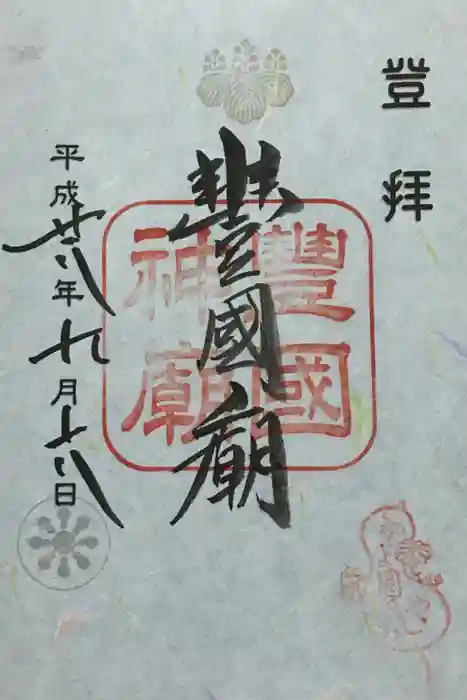 登拝
豊國廟
豊國
神廟
平成廿八年九月十八日